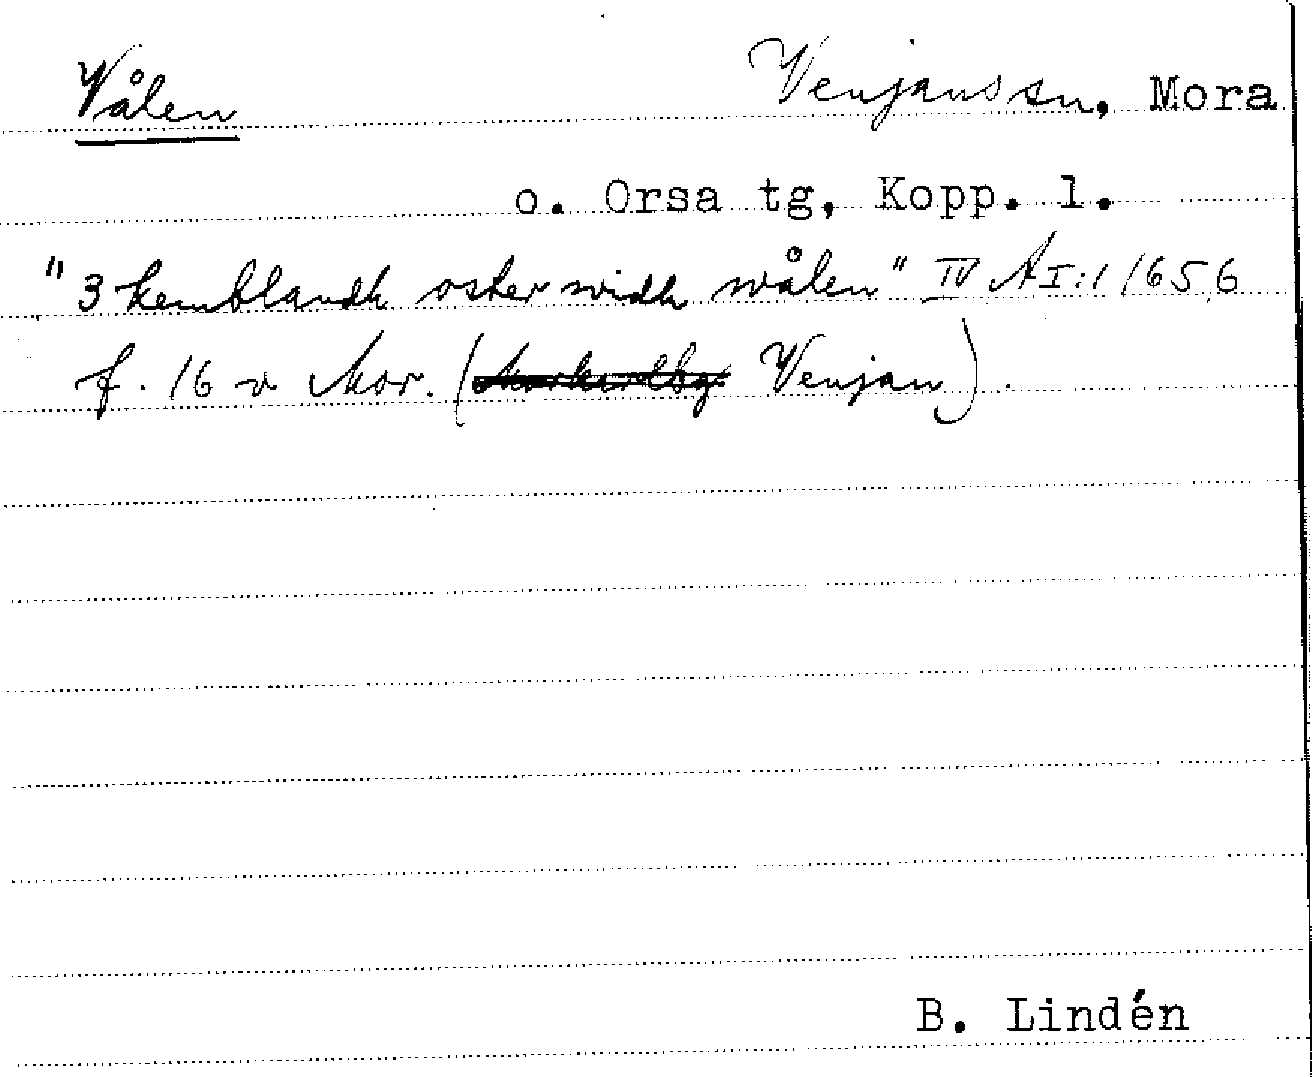 Vålen Venjans sn, Mora
o. Orsa tg, Kopp. l.
"3 kemblandh oster widh wålen" IV A I:1 1656
f. 16 v Mor. (Venjan).
B. Lindén